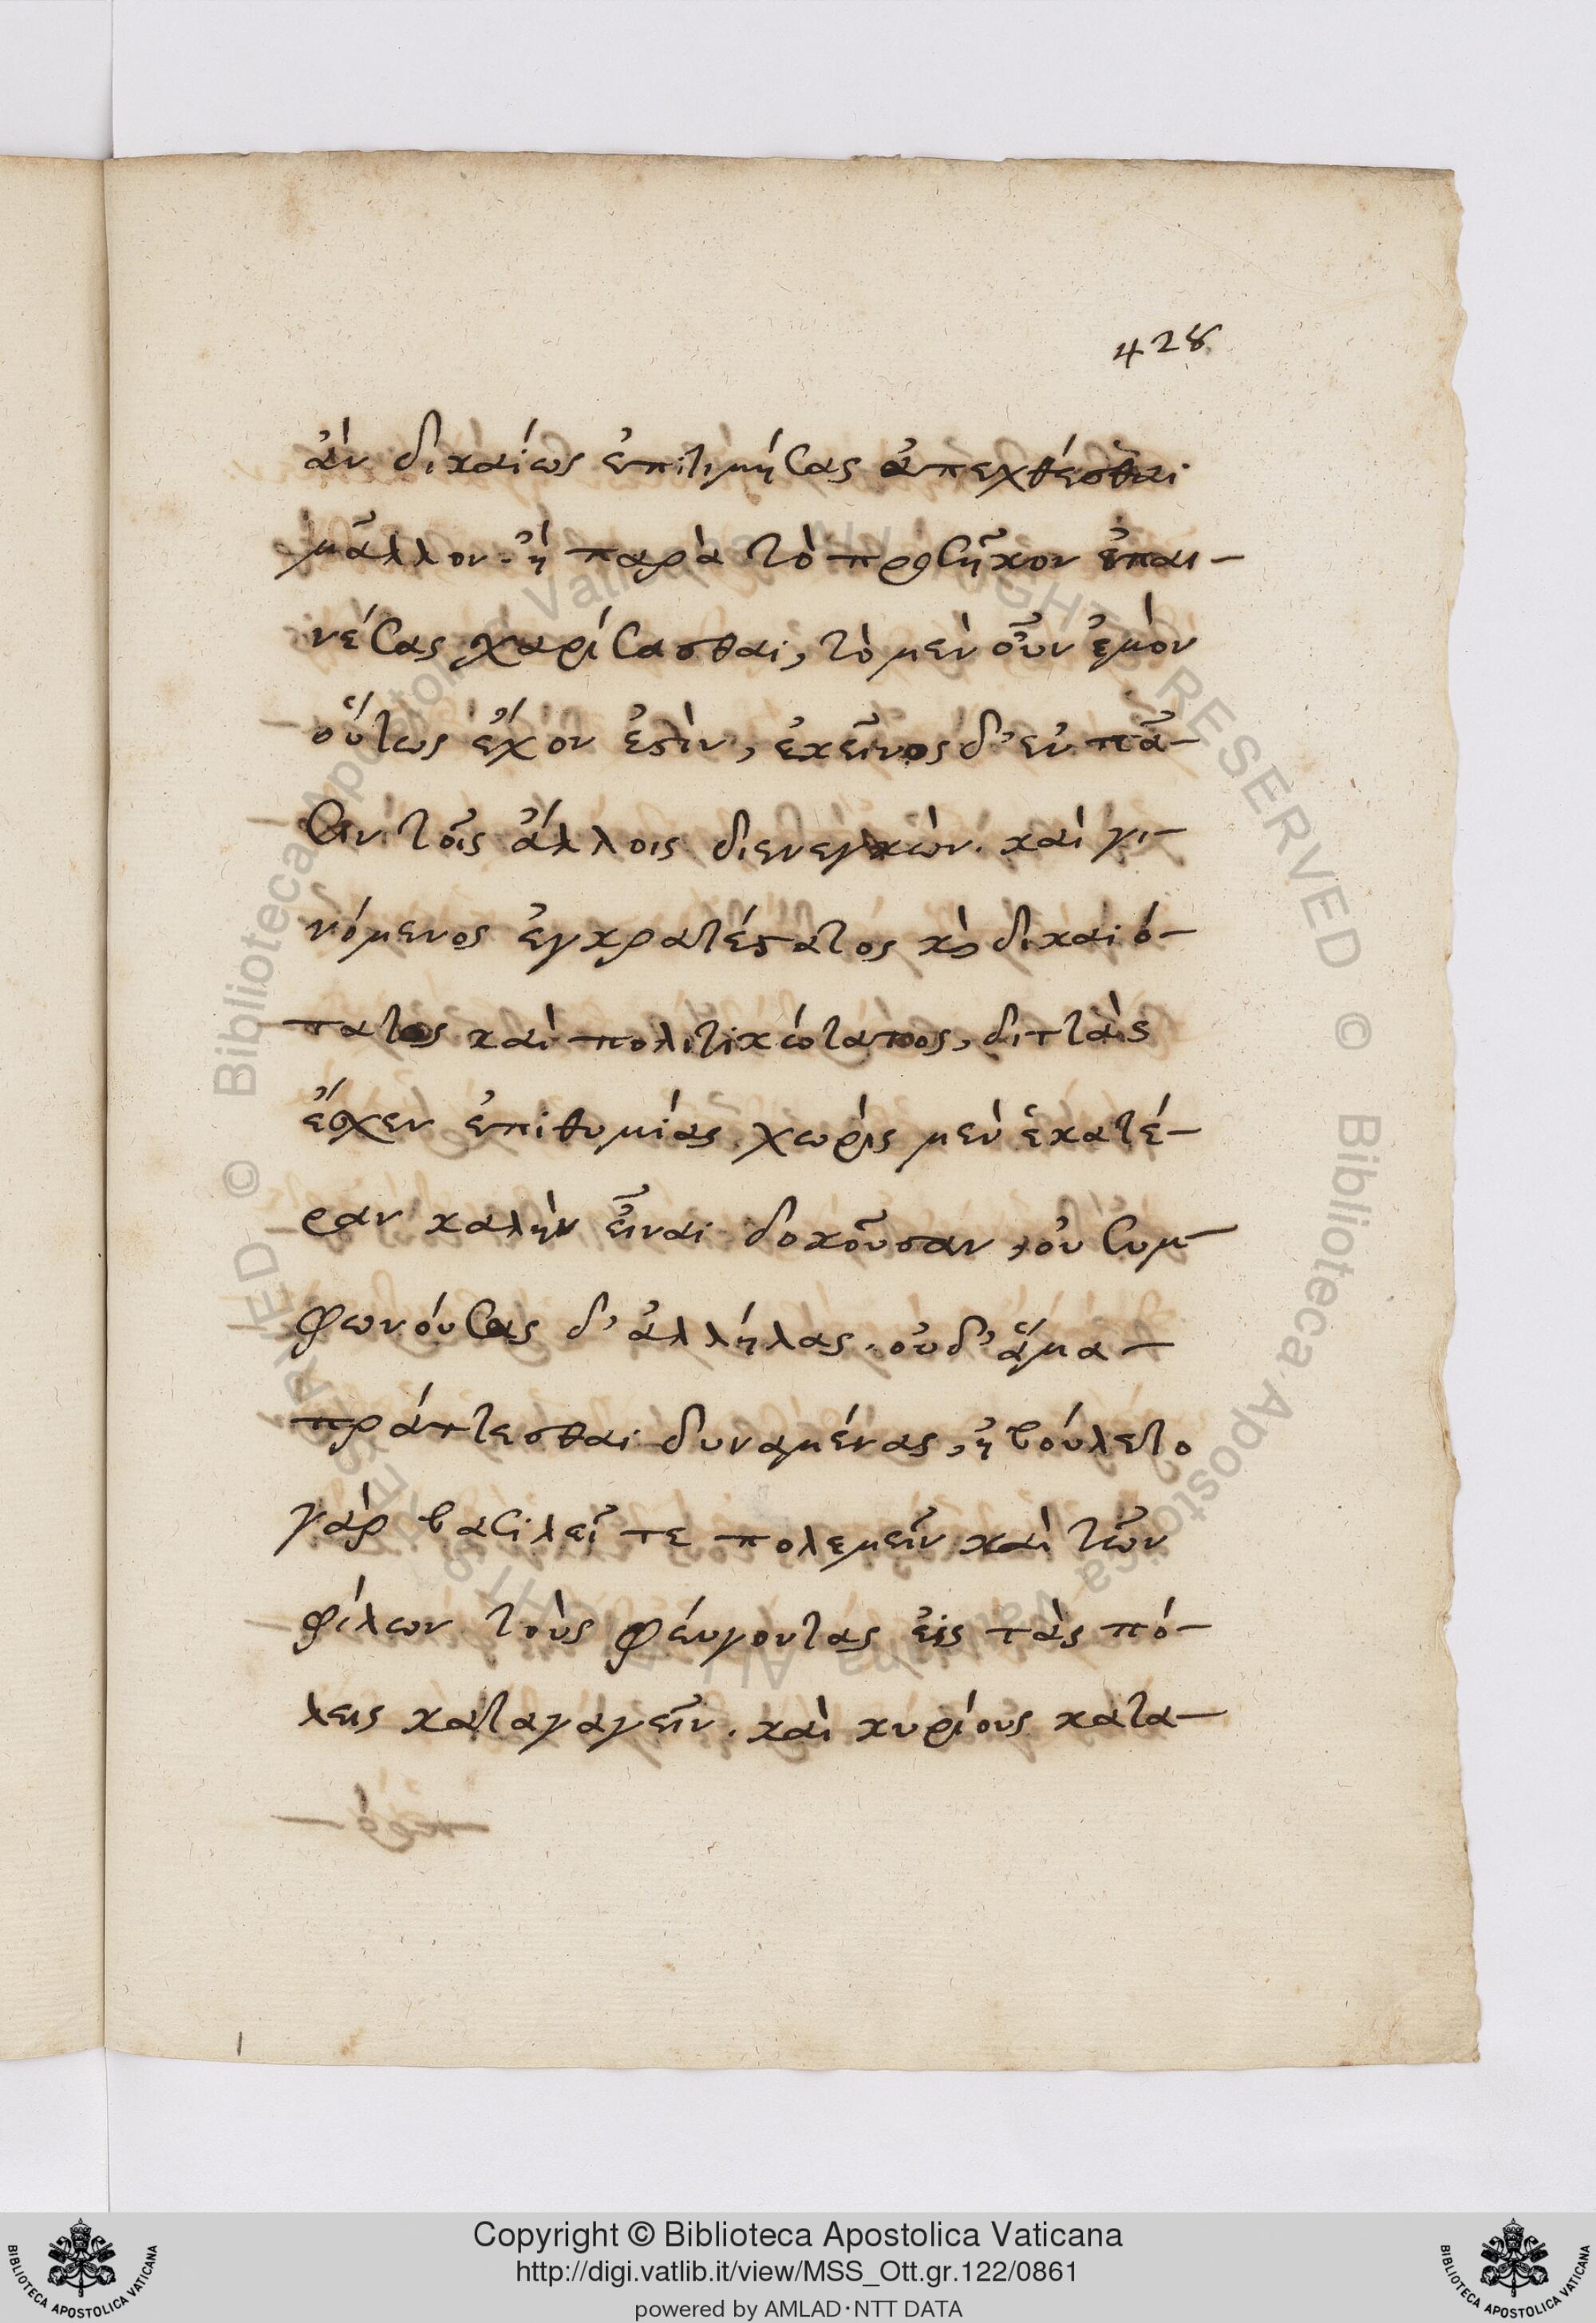 428
ἀὰν δικαίως ἐπιτιμήσας ἀπεχθέσθαι
μᾶλλον. ἢ παρὰ τὸ προσῆκον ἐπαι-
νέσας χαρίσασθαι, τὸ μὲν οὖν ἐμὸν
οὕτως ἔχον ἐστὶν, ἐκεῖνος δ' ἐν πᾶ-
σιν τοῖς ἄλλοις διενεγκὼν. καὶ γι-
νόμενος ἐγκρατέστατος καὶ δικαιό-
τατος καὶ πολιτικώτατος, διττὰς
ἔσχεν ἐπιθυμίας. χωρὶς μὲν ἑκατέ-
ραν καλὴν εἶναι δοκοῦσαν, οὐ συμ-
φωνούσας δ' ἀλλήλας. οὐδ' ἅμα-
πράττεσθαι δυναμένας, ἠβούλετο
γὰρ βασιλεῖ τε πολεμεῖν καὶ τῶν
φίλων τοὺς φεύγοντας εἰς τὰς πό-
λεις καταγαγεῖν. καὶ κυρίους κατα-
Copyright © Biblioteca Apostolica Vaticana
http://digi.vatlib.it/view/MSS_Ott.gr.122/0861
powered by AMLAD·NTT DATA